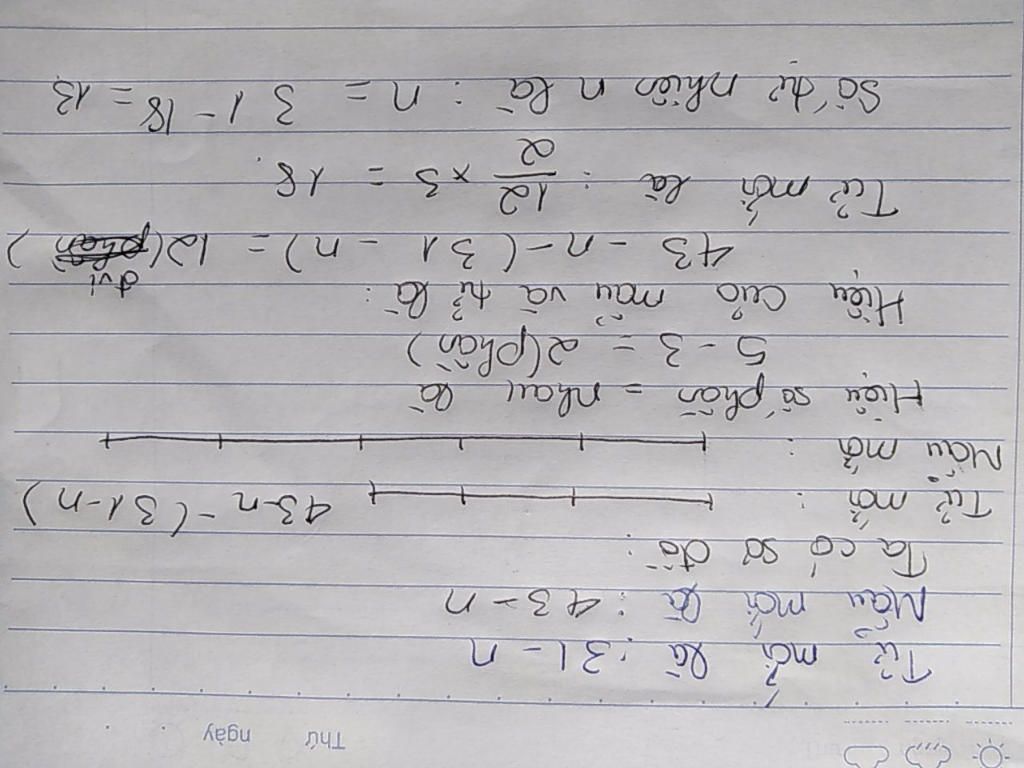 Thứ ngày
Tử mới là : 31 - n
Mẫu mới là : 43 - n
Ta có sơ đồ :
Tử mới : 43-n -(31-n)
Mẫu mới :
Hiệu số phần = nhau là
5 - 3 = 2(phần)
Hiệu của mẫu và tử là :
43 - n - (31 - n) = 12( đvị )
Tử mới là : 12/2 × 3 = 18.
Số tự nhiên n là : n = 31 - 18 = 13